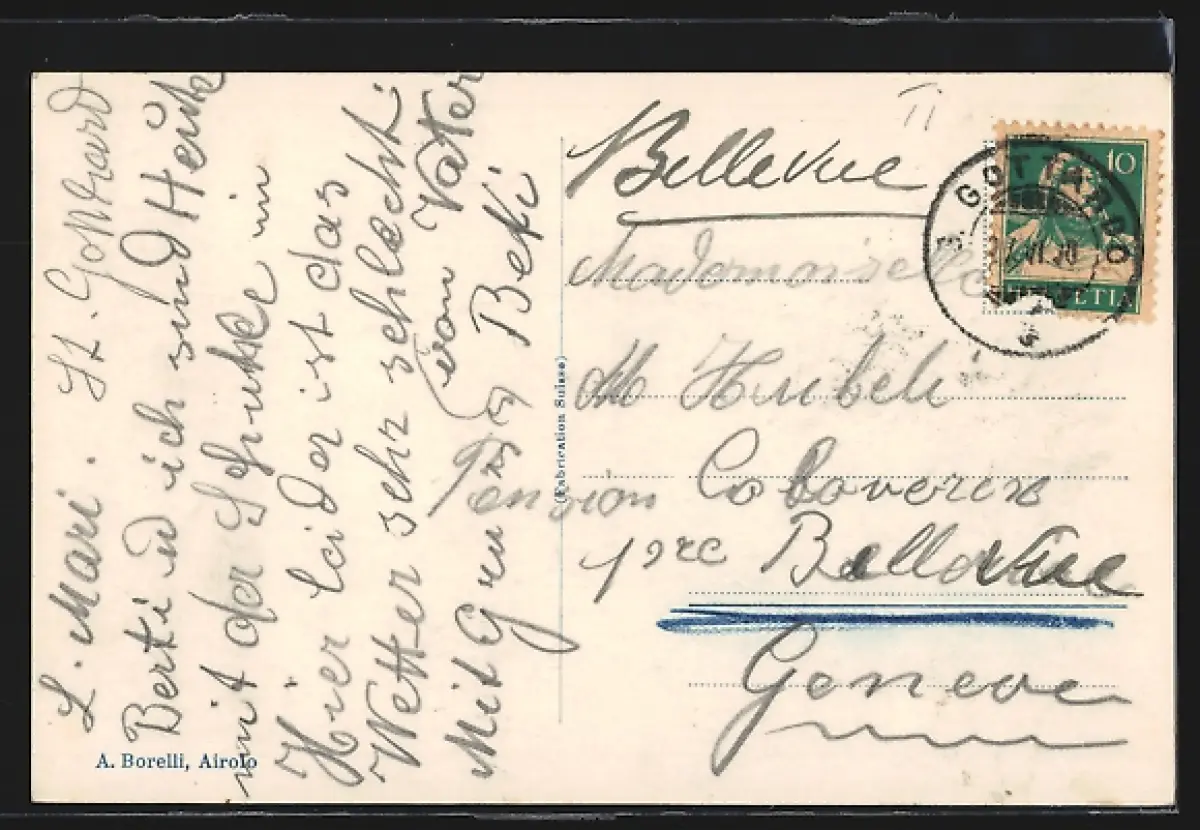 L. Mari. St. Gotthard
Berti u ich sind Heute
mit der Schutke in
Hier leider ist das
Wetter sehr schlecht.
Mit Gruss von Vater
Beti
A. Borelli, Airolo
(Fabrication Suisse)
II
Bellevue
Mademoiselle
M Hubeli
Pension
près Bellevue
Geneve
10
HELVETIA
GOTTARDO